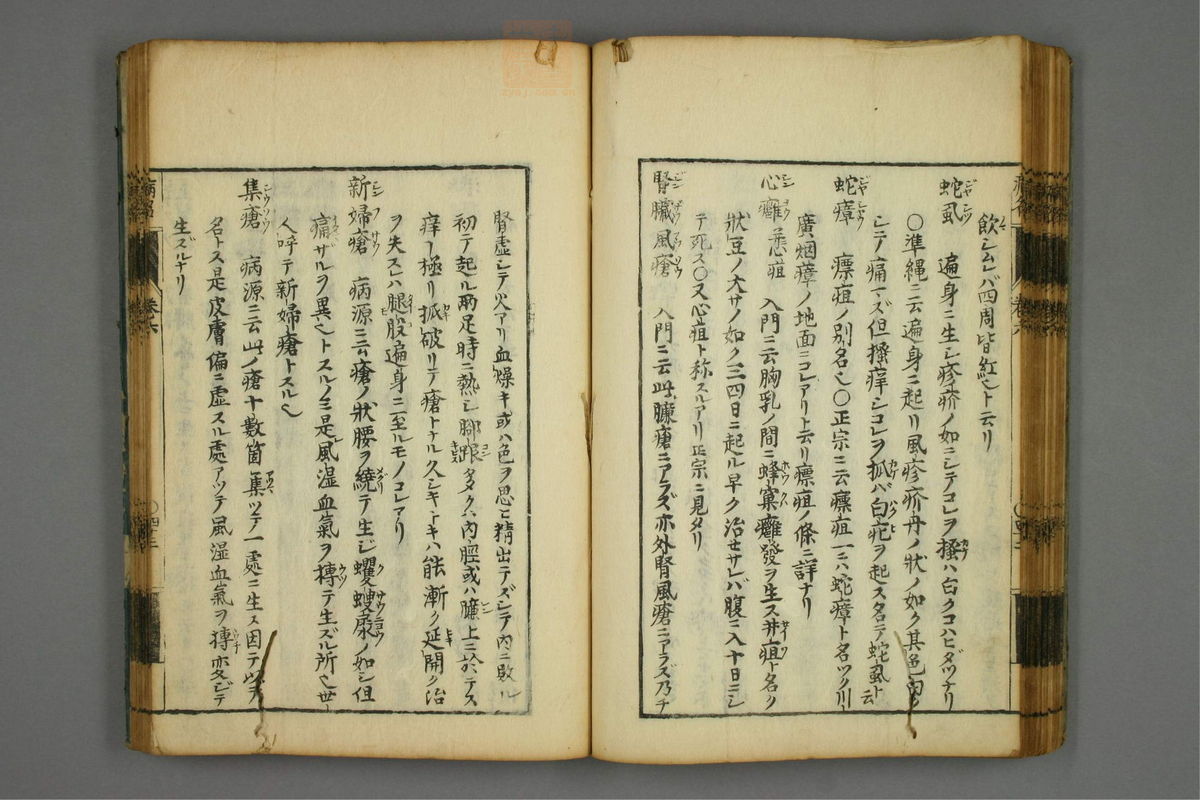 飲シムレバ四周皆紅シト云リ
蛇虱 遍身ニ生シ疹疥ノ如ニシテコレヲ搔ハ白クコハヒダヅナリ
〇準縄ニ云遍身ニ起リ風疹疥丹ノ狀ノ如ク其色白
シニテ痛マズ但搔痒シコレヲ抓バ白疕ヲ起ス名テ蛇虱ト云
蛇瘴 瘭疽ノ別名也〇正宗ニ云瘭疽一ニハ蛇瘴ト名ツク川
廣烟瘴ノ地面ニコレアリト云リ瘭疽ノ條ニ詳ナリ
心癰 入門ニ云胸乳ノ間ニ蜂窠癰發ヲ生ス井疽ト名ク
狀豆ノ大サノ如ク三四日ニ起ル早ク治せサレバ腹ニ入十日ニシ
テ死ス〇又心疽ト称スルアリ正宗ニ見タリ
腎臟風瘡 入門ニ云此臁瘡ニアラズ亦外腎風瘡ニアラズ乃チ
腎虚シテ火アリ血燥キ或ハ色ヲ思ヒ精出テズシテ內ニ敗ル
初テ起ル兩足時ニ熱シ脚跟タダク內脛或ハ臁上ニ於テス
痒ー極リ抓破リテ瘡トナル久シキトキハ能漸ク延開ク治
ヲ失スハ腿股遍身ニ至ルモノコレアリ
新婦瘡 病源ニ云瘡ノ狀腰ヲ繞テ生ジ蠼螋尿ノ如シ但
痛ザルヲ異也トスルノミ是風湿血氣ヲ搏テ生ズル所也世
人呼テ新婦瘡トスル也
集瘡 病源ニ云此ノ瘡十數箇集ツテ一處ニ生ス因テ以ヲ
名トス是皮膚偏ニ虚スル處アツテ風湿血氣ヲ搏変ジテ
生ズルナリ